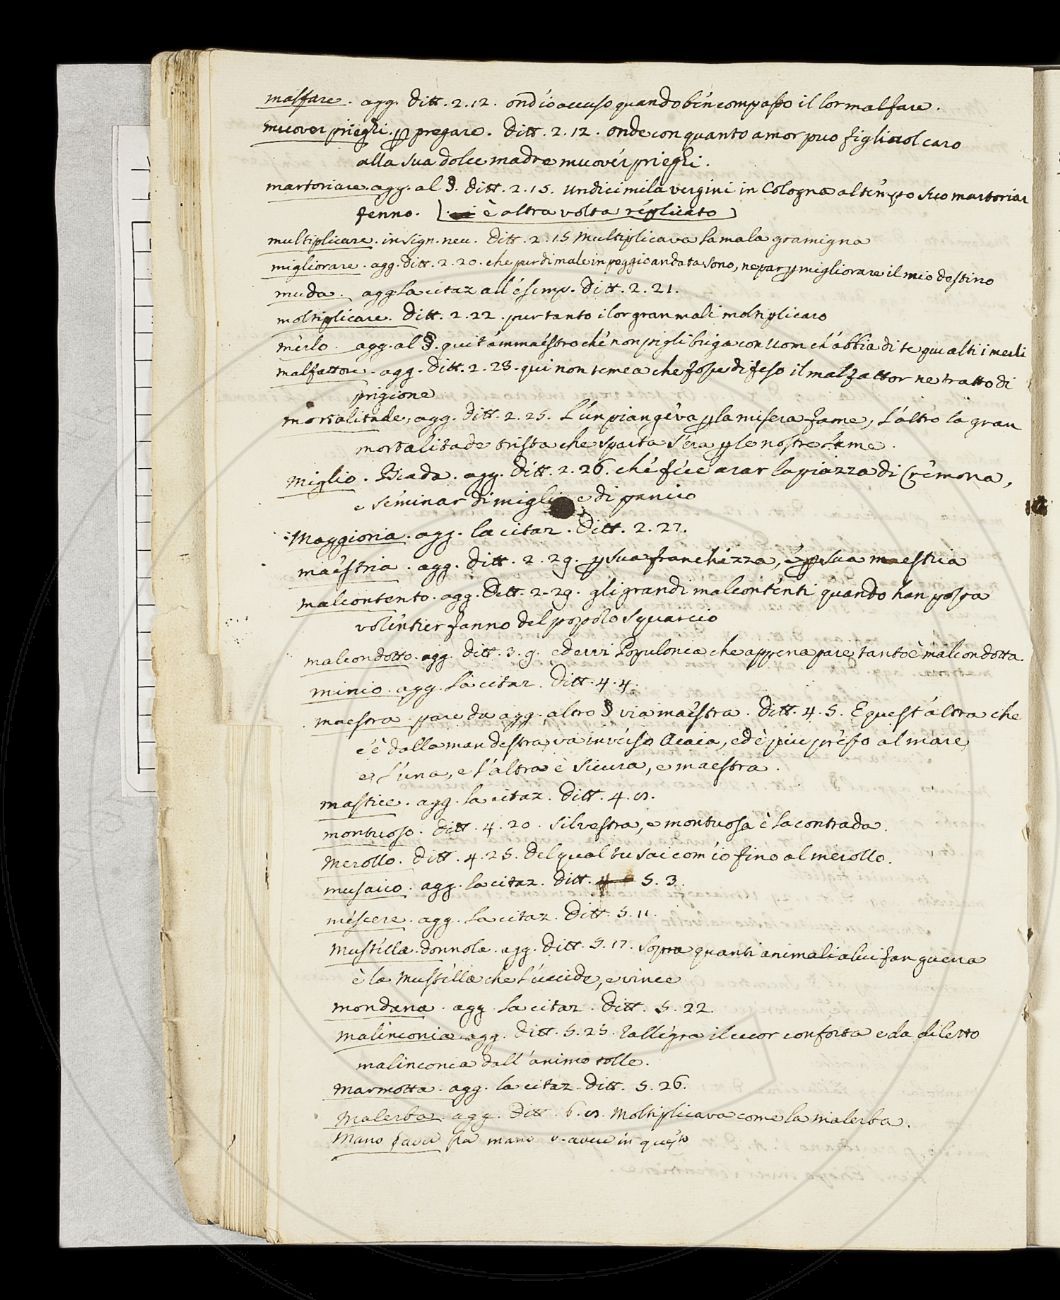 malfare. agg. Ditt. 2.12. ond'io accuso quando bén compasso il lor malfare.
muover prieghi. p pregare. Ditt. 2.12. onde con quanto amor può figliuol caro
alla sua dolce madre muovér prieghi.
martoriare. agg. al §. Ditt. 2.15. undici mila vergini in Cologna al témpo suo martoriar
fenno. è altra volta réplicato
multiplicare. in sign. neu. Ditt. 2.15 Multiplicava la mala gramigna
migliorare. agg. Ditt. 2.20. che pur di male in peggio andata sono, né par p migliorare il mio destino
muda. agg. la citaz. all'ésemp. Ditt. 2.21.
moltiplicare. Ditt. 2.22. pur tanto i lor gran mali moltiplicaro
mérlo. agg. al §. briga con uom ch'abbia di te più alti i merli
malfattore. agg. Ditt. 2.23. qui non temea che fosse difeso il malfattor né tratto di
prigione
mortalitade, agg. Ditt. 2.25. L'un piangéva p la misera fame, l'altro la gran
mortalitade trista che sparta s'era p le nostre lame.
Miglio. Biada. agg. Ditt. 2.26. ché fece arar la piazza di Cremona,
e séminar di miglio e di panico
Maggioria. agg. la citaz. Ditt. 2.27.
maéstria. agg. Ditt. 2.29. p sua franchézza, é p sua maestria
malcontento. agg. Ditt. 2.29. gli grandi malconténti quando han possa
voléntier fanno del popolo squarcio
malcondotto. agg. Ditt. 3.9. ed evvi Populonea che appena pare, tanto è malcondotta.
minio. agg. la citaz. Ditt. 4.4.
maestra. pare da agg. altro § via maéstra. Ditt. 4.5. E quest'altra che
c'è dalla man destra va invérso Acaia, ed è più présso al mare
e l'una, e l'altra è sicura, e maestra.
mastice. agg. la citaz. Ditt. 4.8.
montuoso. Ditt. 4.20. silvestra, e montuosa è la contrada.
Merollo. Ditt. 4.25. Del qual tu sai com'io fino al merollo.
musaico. agg. la citaz. Ditt. 5.3.
méscere. agg. la citaz. Ditt. 5.11.
Mustélla. donnola. agg. Ditt. 5.17. Sopra quanti animali a lui fan guerra
è la Mustélla che l'uccide, e vince
mondana. agg. la citaz. Ditt. 5.22
malinconia. agg. Ditt. 5.25. rallégra il cuor conforta e da diletto
malinconia dall'animo tolle.
Marmotta. agg. la citaz. Ditt. 5.26.
Malerba. agg. Ditt. 6.8. Moltiplicava come la malerba.
Mano